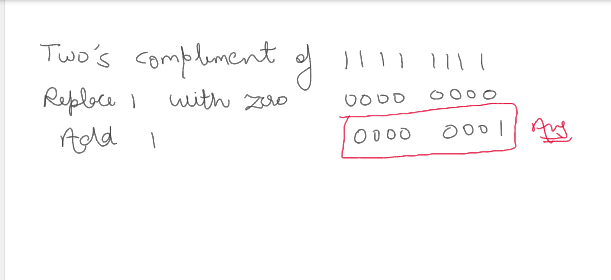 Two's complement of 1111 1111
Replace 1 with zero 0000 0000
Add 1 0000 0001 Ans